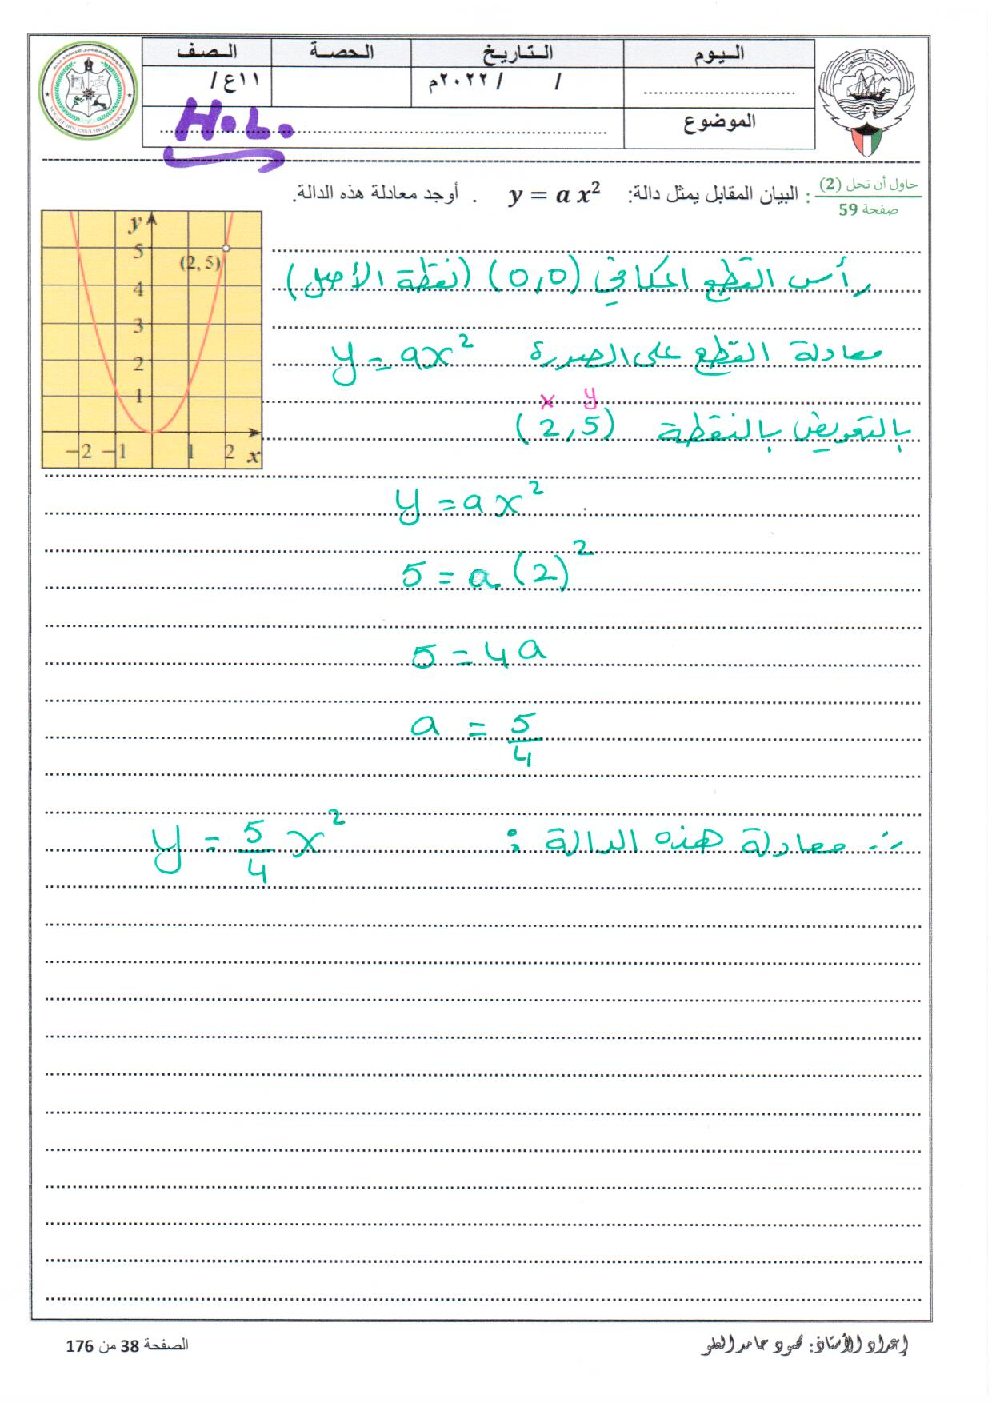 اليوم التاريخ الحصة الصف
/ / ٢٠٢٢م ١١ع /
الموضوع H.L.
حاول أن تحل (2) صفحة 59 : البيان المقابل يمثل دالة: y = a x² . أوجد معادلة هذه الدالة.
y
5
(2, 5)
4
3
2
1
−2 −1 1 2 x
رأس القطع المكافئ (0,0) (نقطة الأصل)
معادلة القطع على الصورة y = ax²
x y
بالتعويض بالنقطة (2,5)
y = ax²
5 = a(2)²
5 = 4a
a = 5/4
∴ معادلة هذه الدالة : y = 5/4 x²
إعداد الأستاذ: محمود حامد
الصفحة 38 من 176